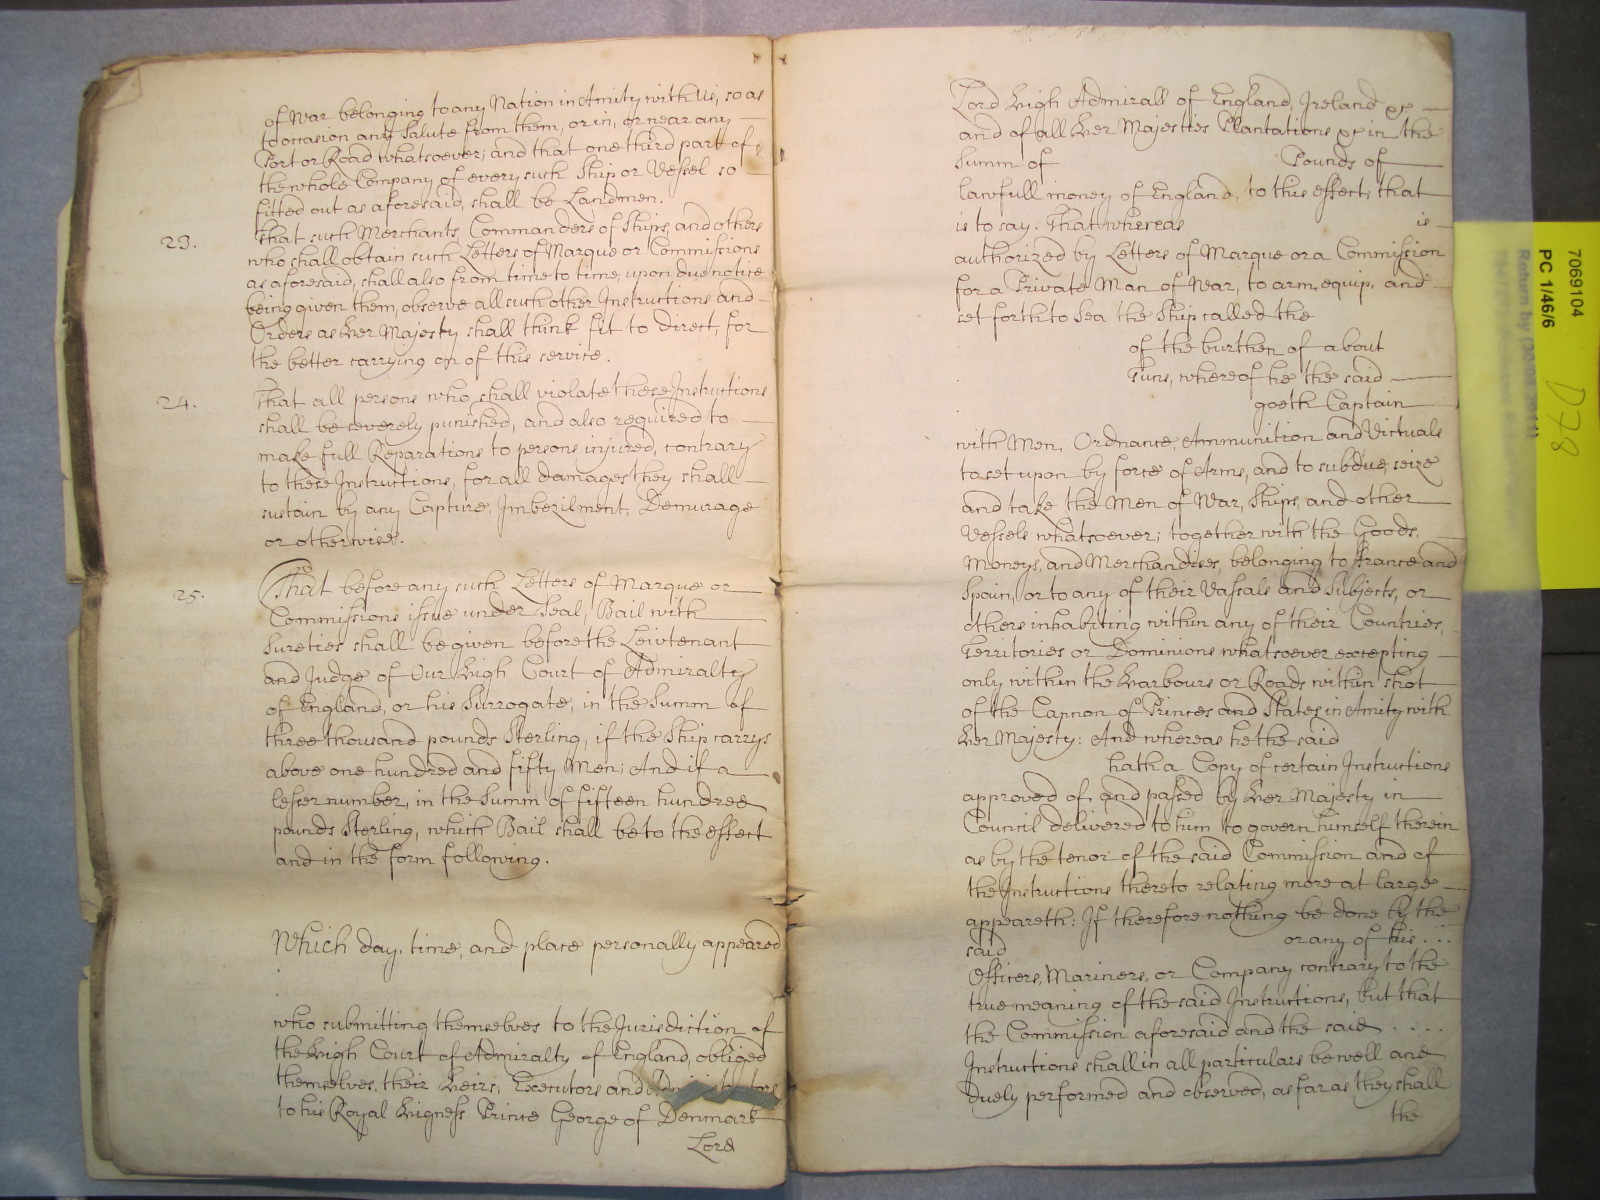 of War belonging to any Nation in Amity with Us, so as
to occasion any Salute from them, or in, or near any
Port or Road whatsoever; and that one third part of
the whole Company of every such Ship or Vessel so
fitted out as aforesaid, shall be Landmen.
23. That such Merchants, Commanders of Ships, and others
who shall obtain such Letters of Marque or Commissions
as aforesaid, shall also from time to time, upon due notice
being given them, observe all such other Instructions and
Orders as Her Majesty shall think fit to direct, for
the better carrying on of this service.
24. That all persons who shall violate these Instructions
shall be severely punished, and also required to
make full Reparations to persons injured, contrary
to these Instructions, for all damages they shall
sustain by any Capture, Imbezilment, Demurage
or otherwise.
25. That before any such Letters of Marque or
Commissions issue under Seal, Bail with
Sureties shall be given before the Leivtenant
and Judge of Our High Court of Admiralty
of England, or his Surrogate, in the Summ of
three thousand pounds Sterling, if the Ship carrys
above one hundred and fifty Men; And if a
lesser number, in the Summ of fifteen hundred
pounds Sterling, which Bail shall be to the effect
and in the form following.
Which day, time, and place personally appeared
who submitting themselves to the Jurisdiction of
the High Court of Admiralty of England, obliged
themselves, their Heirs, Executors and Administrators
to his Royal Higness Prince George of Denmark
Lord
Lord High Admirall of England, Ireland &c
and of all Her Majesties Plantations &c in the
Summ of Pounds of
lawfull money of England, to this effect; that
is to say. That whereas is
authorized by Letters of Marque or a Commission
for a Private Man of War, to arm, equip, and
set forth to Sea the Ship called the
of the burthen of about
Tuns, whereof he the said
goeth Captain
with Men, Ordnance, Ammunition and Victuals
to set upon by force of Arms, and to subdue, seize
and take the Men of War, Ships, and other
Vessels whatsoever; together with the Goods,
Moneys, and Merchandises, belonging to France and
Spain, or to any of their Vassals and Subjects, or
others inhabiting within any of their Countries,
Territories or Dominions whatsoever excepting
only within the Harbours or Roads within shot
of the Cannon of Princes and States in Amity with
Her Majesty: And whereas he the said
hath a Copy of certain Instructions
approved of, and passed by Her Majesty in
Council delivered to him to govern himself therein
as by the tenor of the said Commission and of
the Instructions thereto relating more at large
appeareth: If therefore nothing be done by the
said or any of his ...
Officers, Mariners, or Company contrary to the
true meaning of the said Instructions, but that
the Commission aforesaid and the said ....
Instructions shall in all particulars be well and
duely performed and observed, as far as they shall
the
7069104
PC 1/46/6
D78